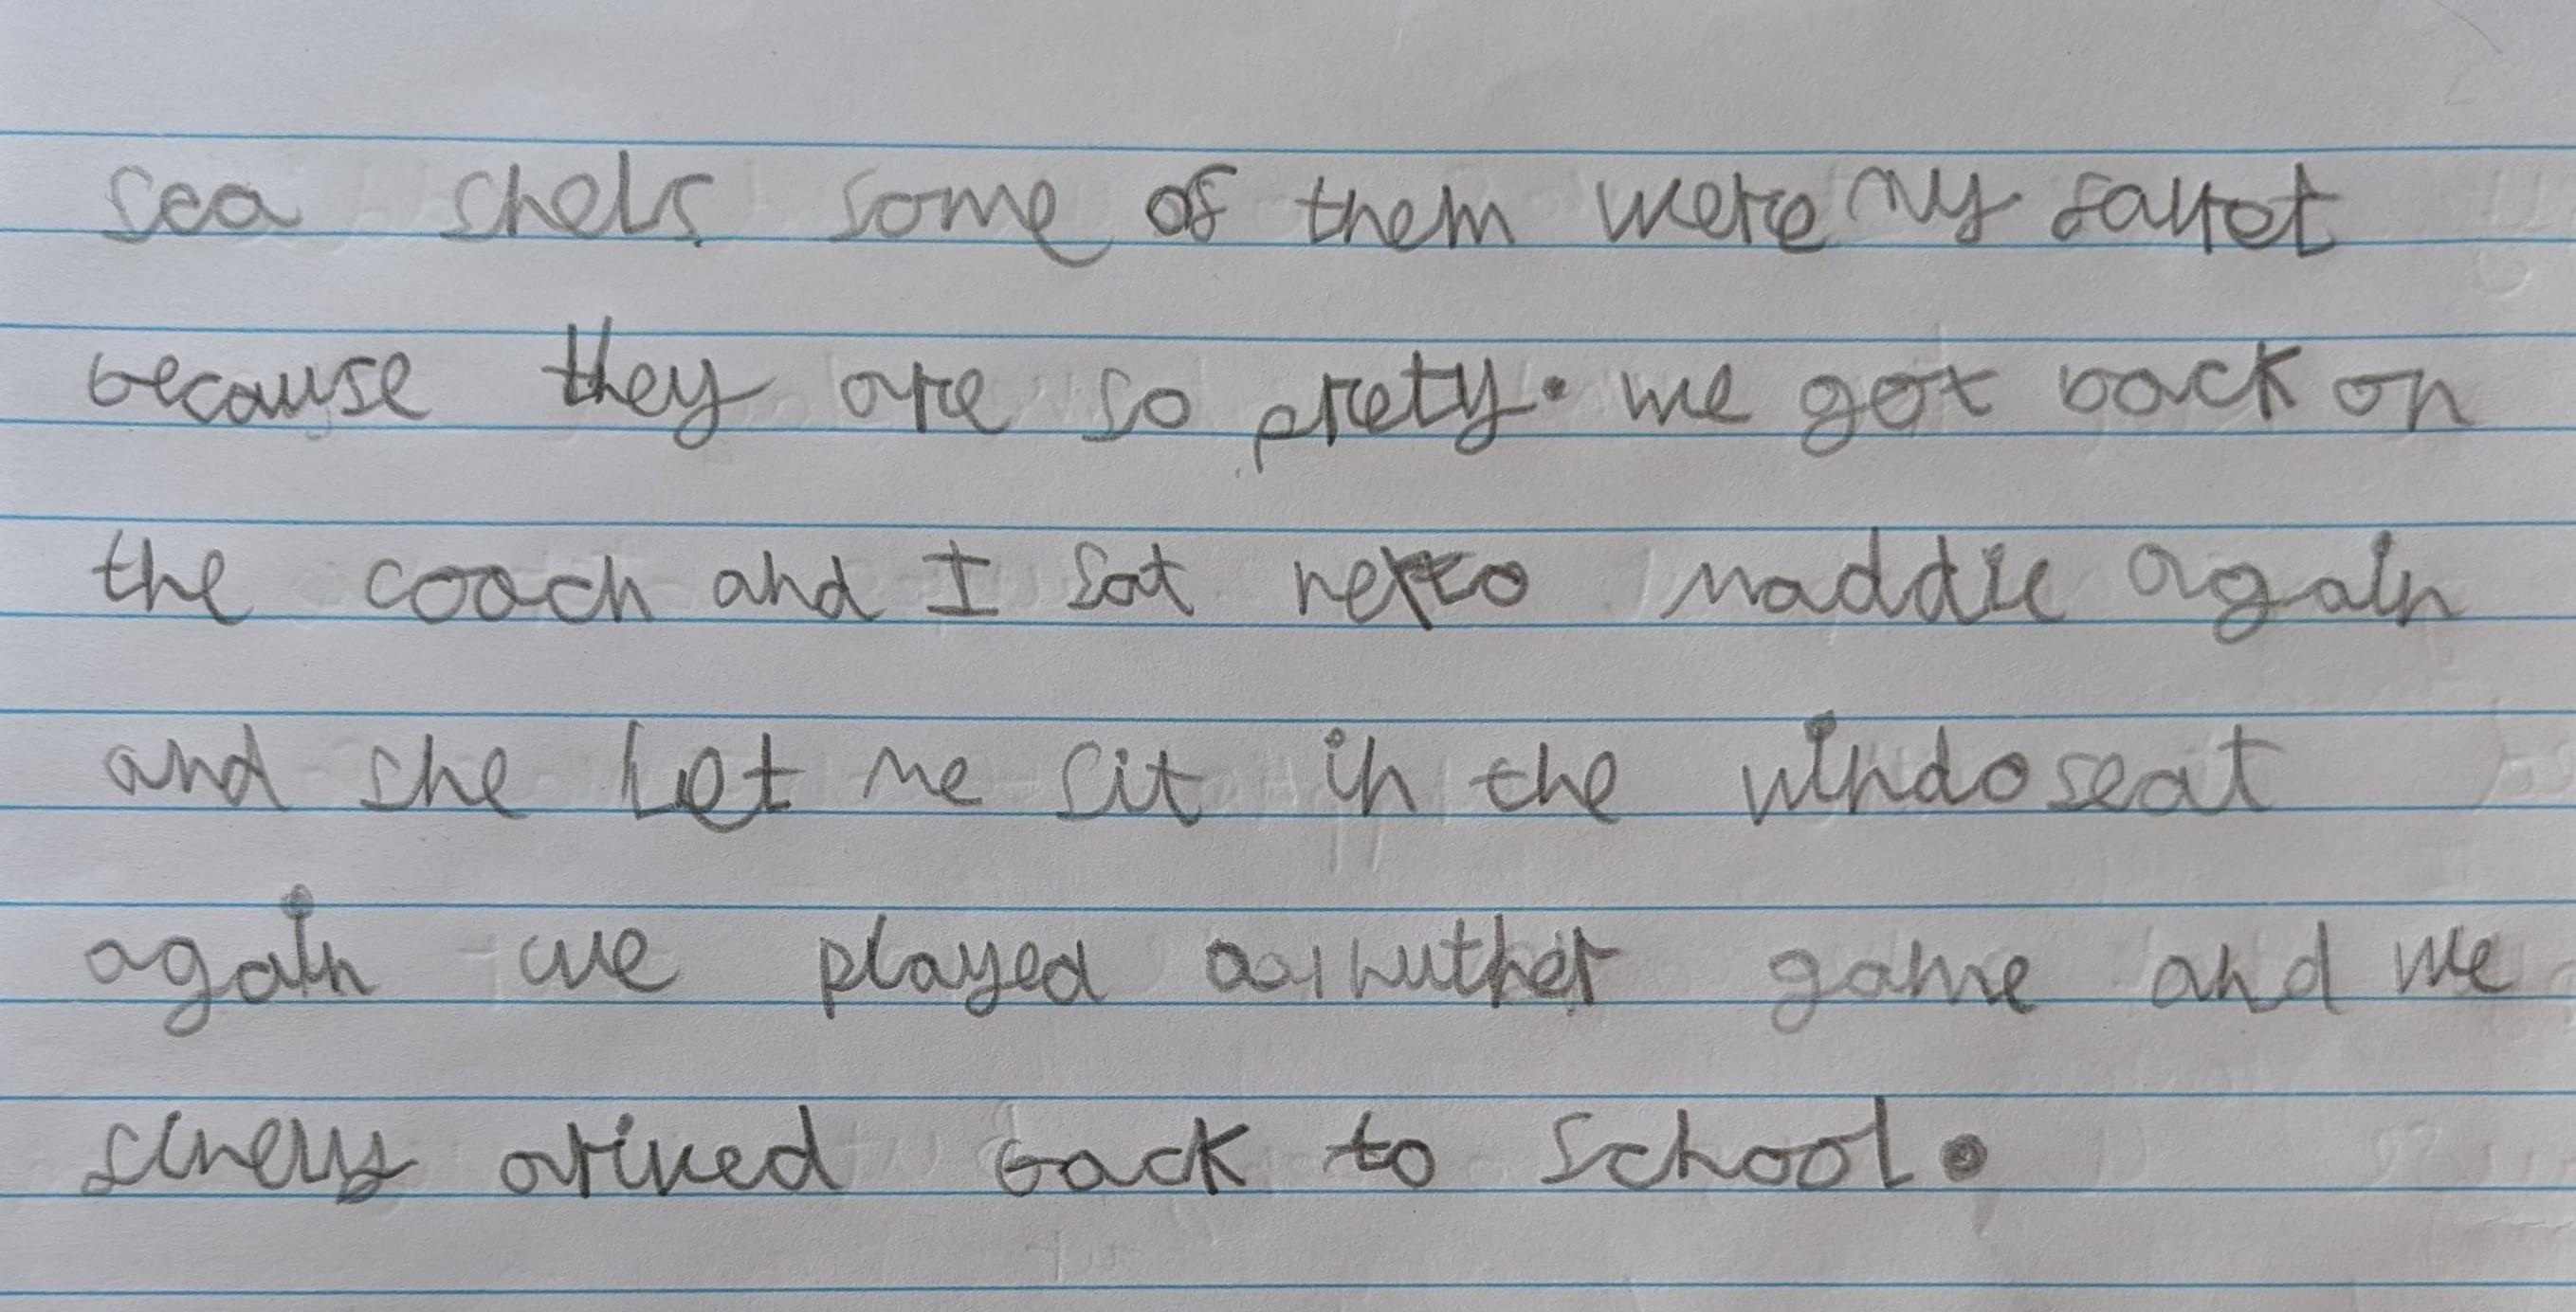 sea shels some of them were my favret
because they are so prety. we got back on
the coach and I sat nexto maddie again
and she let me sit in the windoseat
again we played anuther game and we
finely arived back to school.